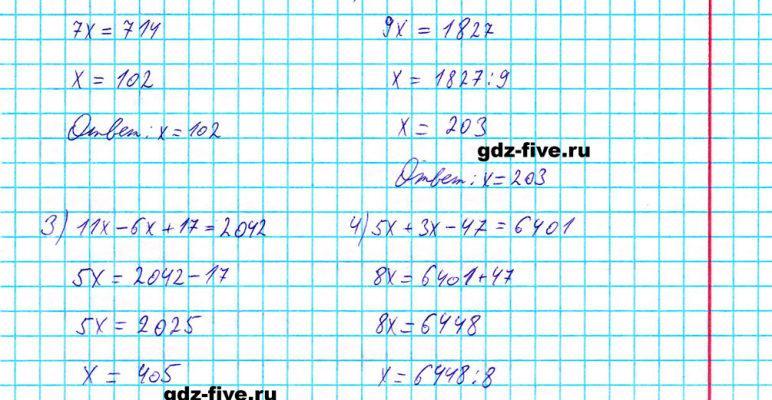 7x = 714
x = 102
Ответ: x = 102
9x = 1827
x = 1827:9
x = 203
gdz-five.ru
Ответ: x = 203
3) 11x - 6x + 17 = 2042
5x = 2042 - 17
5x = 2025
x = 405
gdz-five.ru
4) 5x + 3x - 47 = 6401
8x = 6401 + 47
8x = 6448
x = 6448:8